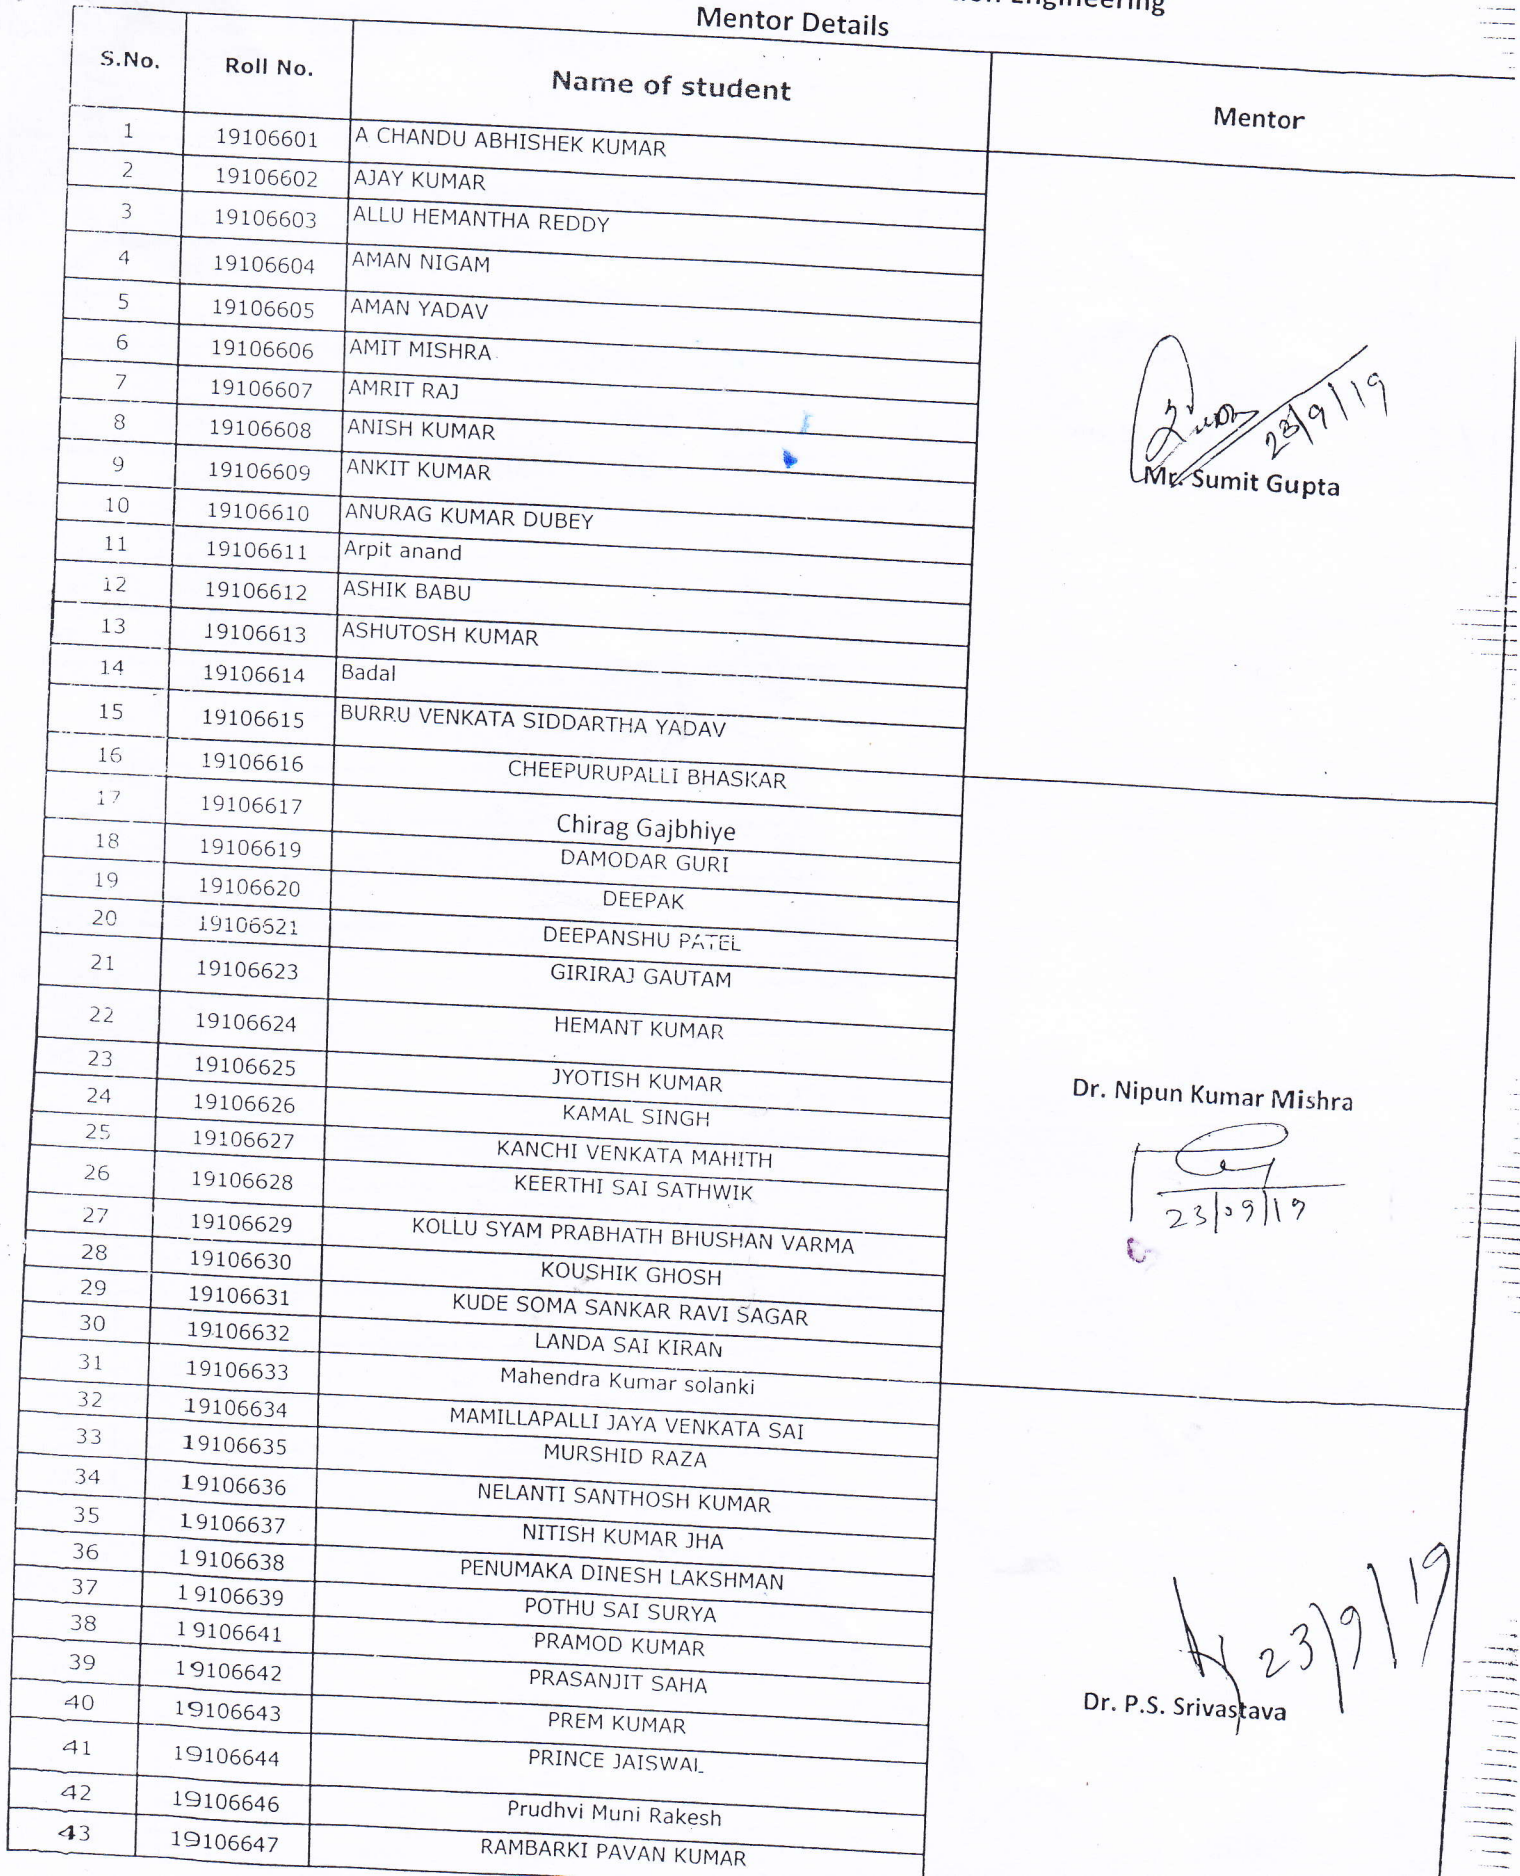 Engineering
Mentor Details
S.No. Roll No. Name of student Mentor
1 19106601 A CHANDU ABHISHEK KUMAR
2 19106602 AJAY KUMAR
3 19106603 ALLU HEMANTHA REDDY
4 19106604 AMAN NIGAM
5 19106605 AMAN YADAV
6 19106606 AMIT MISHRA
7 19106607 AMRIT RAJ
8 19106608 ANISH KUMAR
23/9/19
9 19106609 ANKIT KUMAR
Mr. Sumit Gupta
10 19106610 ANURAG KUMAR DUBEY
11 19106611 Arpit anand
12 19106612 ASHIK BABU
13 19106613 ASHUTOSH KUMAR
14 19106614 Badal
15 19106615 BURRU VENKATA SIDDARTHA YADAV
16 19106616 CHEEPURUPALLI BHASKAR
17 19106617 Chirag Gajbhiye
18 19106619 DAMODAR GURI
19 19106620 DEEPAK
20 19106621 DEEPANSHU PATEL
21 19106623 GIRIRAJ GAUTAM
22 19106624 HEMANT KUMAR
23 19106625 JYOTISH KUMAR
Dr. Nipun Kumar Mishra
24 19106626 KAMAL SINGH
25 19106627 KANCHI VENKATA MAHITH
26 19106628 KEERTHI SAI SATHWIK
23/09/19
27 19106629 KOLLU SYAM PRABHATH BHUSHAN VARMA
28 19106630 KOUSHIK GHOSH
29 19106631 KUDE SOMA SANKAR RAVI SAGAR
30 19106632 LANDA SAI KIRAN
31 19106633 Mahendra Kumar solanki
32 19106634 MAMILLAPALLI JAYA VENKATA SAI
33 19106635 MURSHID RAZA
34 19106636 NELANTI SANTHOSH KUMAR
35 19106637 NITISH KUMAR JHA
36 19106638 PENUMAKA DINESH LAKSHMAN
37 19106639 POTHU SAI SURYA
38 19106641 PRAMOD KUMAR
23/9/19
39 19106642 PRASANJIT SAHA
Dr. P.S. Srivastava
40 19106643 PREM KUMAR
41 19106644 PRINCE JAISWAL
42 19106646 Prudhvi Muni Rakesh
43 19106647 RAMBARKI PAVAN KUMAR